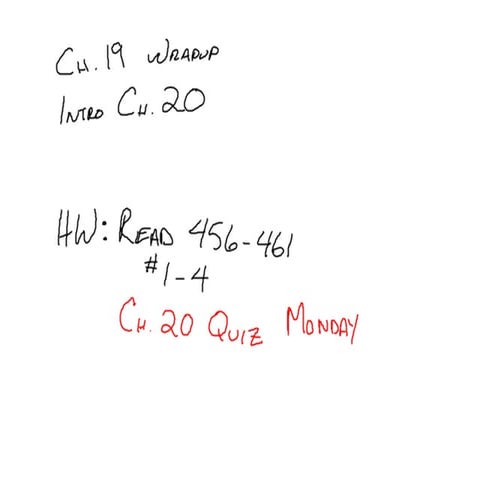 CH. 19 WRAPUP
INTRO CH. 20
HW: READ 456-461
#1-4
CH. 20 QUIZ MONDAY